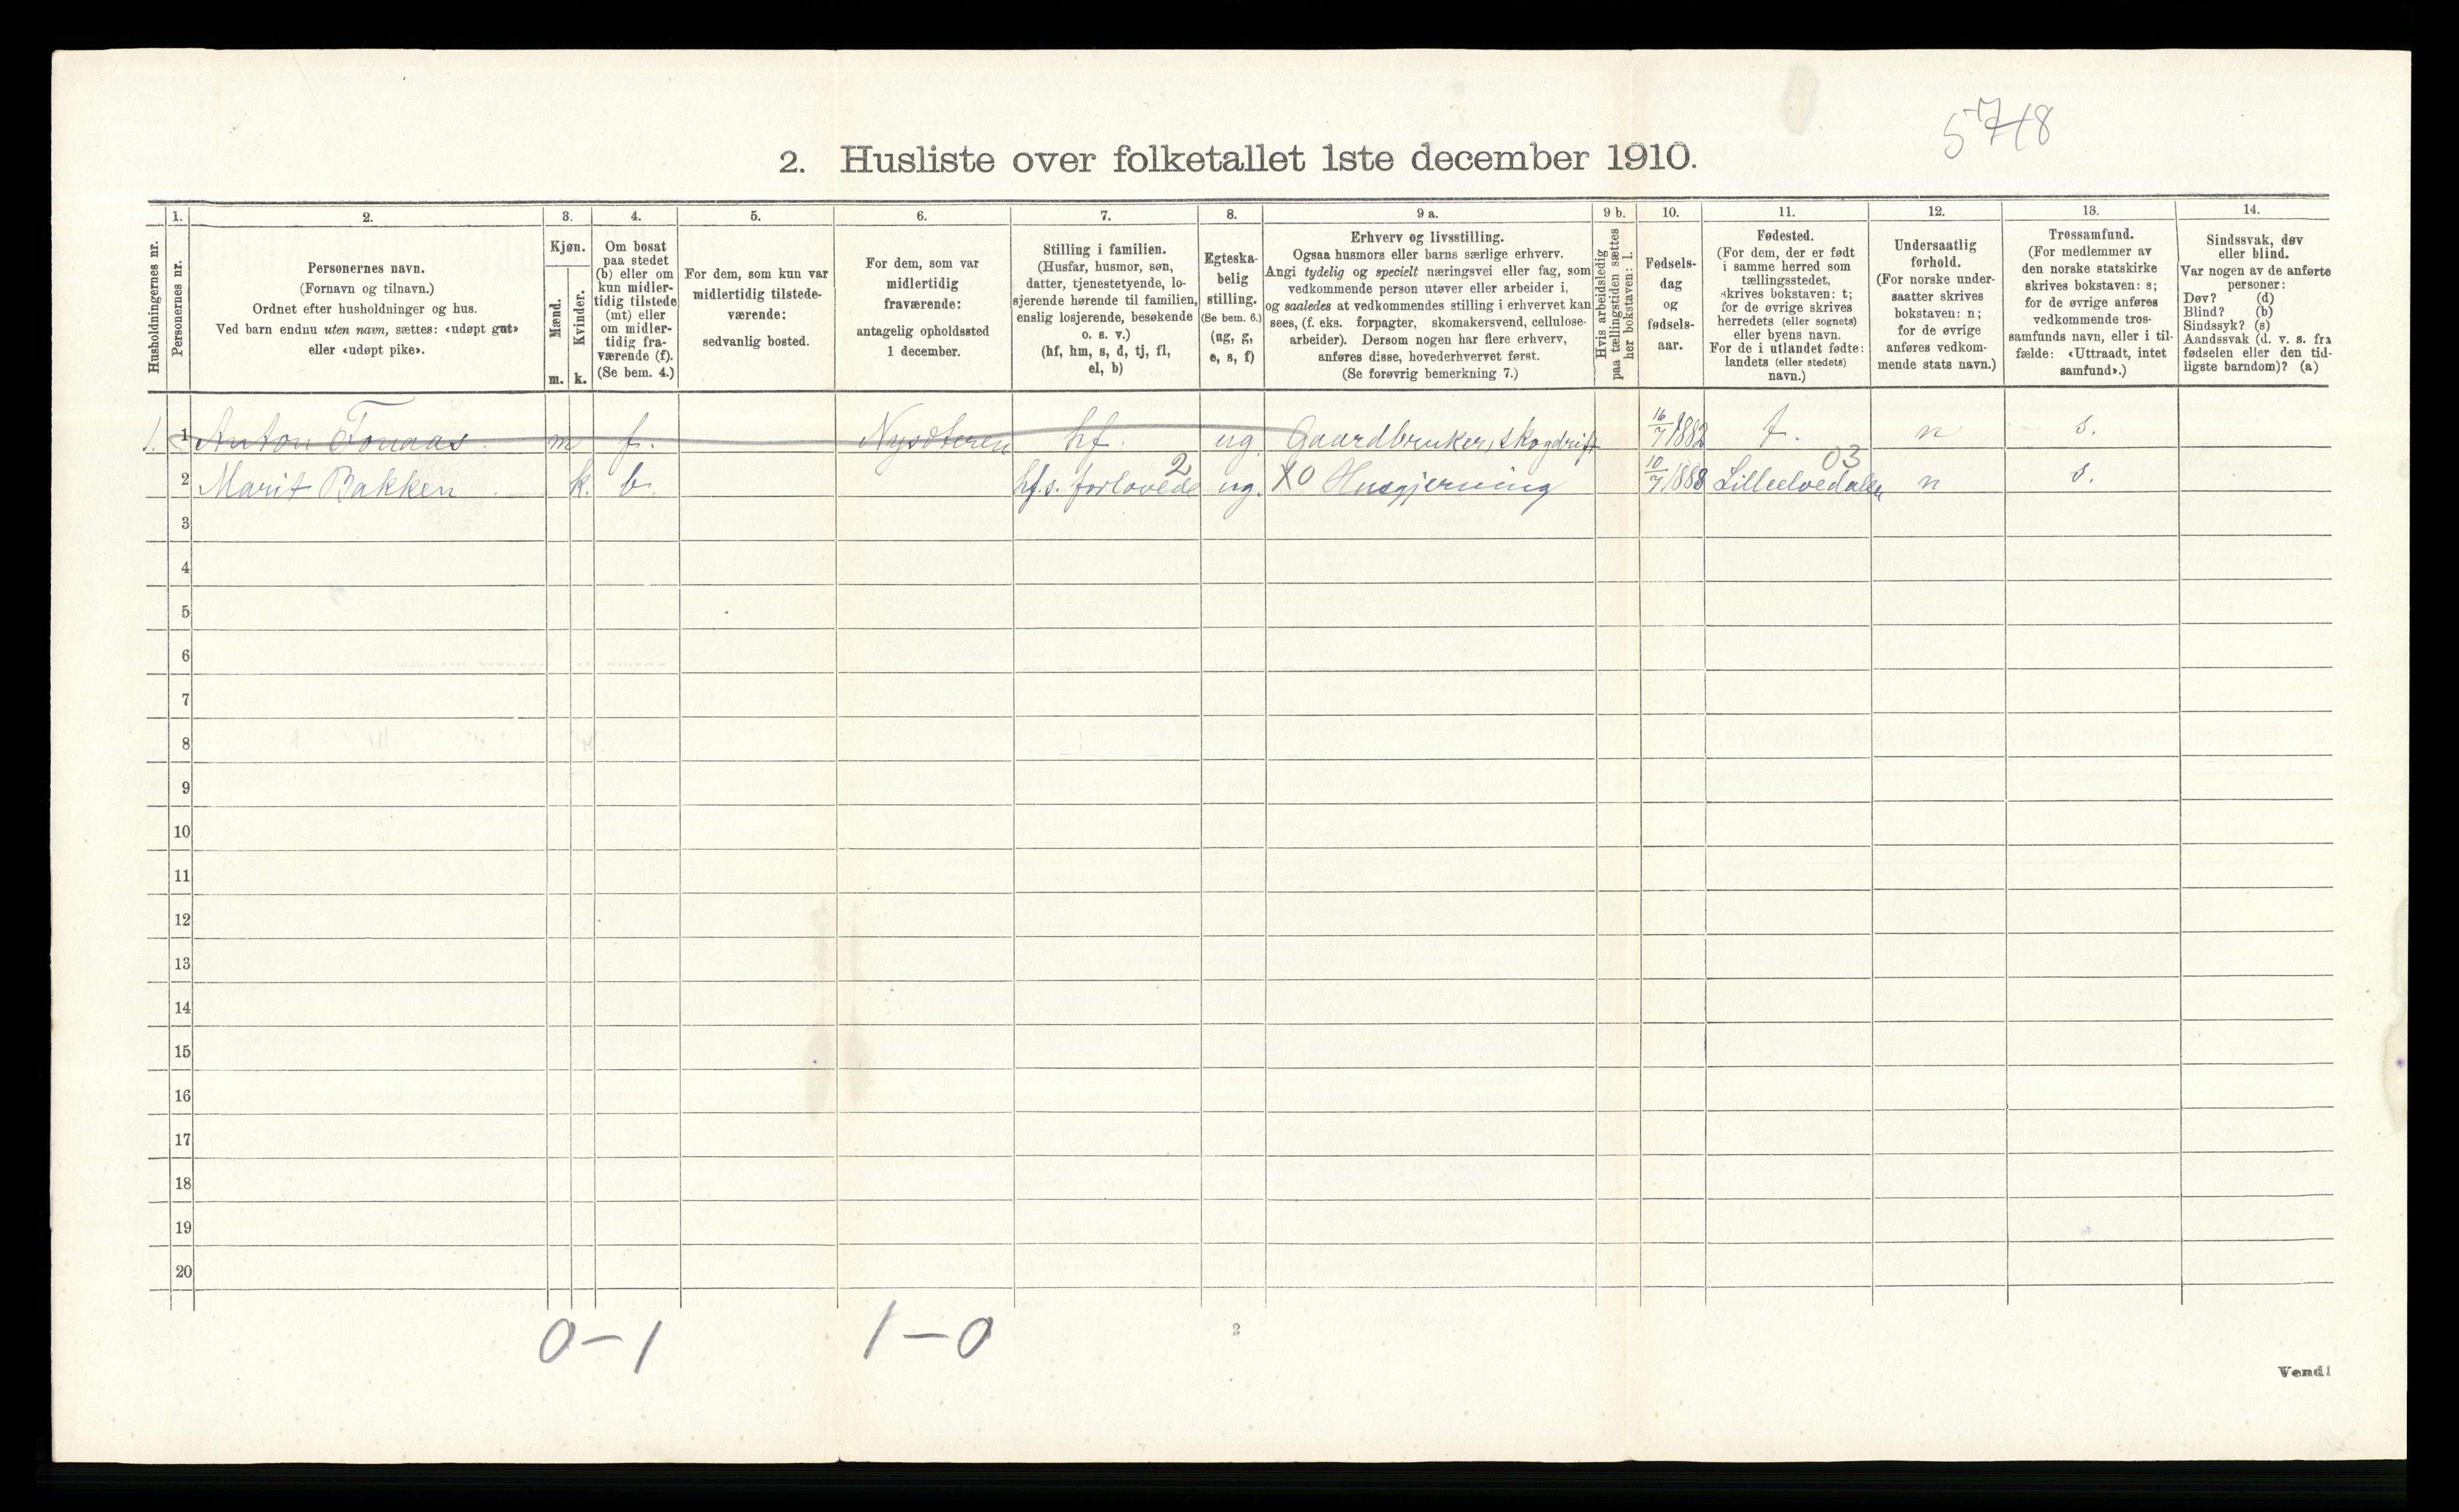 5718
2. Husliste over folketallet 1ste december 1910.
Husholdningernes nr.
1.
Personernes nr.
2.
Personernes navn.
(Fornavn og tilnavn.)
Ordnet efter husholdninger og hus.
Ved barn endnu uten navn, sættes: «udøpt gut»
eller «udøpt pike».
3.
Kjøn.
Mænd.
m.
Kvinder.
k.
4.
Om bosat
paa stedet
(b) eller om
kun midler-
tidig tilstede
(mt) eller
om midler-
tidig fra-
værende (f).
(Se bem. 4.)
5.
For dem, som kun var
midlertidig tilstede-
værende:
sedvanlig bosted.
6.
For dem, som var
midlertidig
fraværende:
antagelig opholdssted
1 december.
7.
Stilling i familien.
(Husfar, husmor, søn,
datter, tjenestetyende, lo-
sjerende hørende til familien,
enslig losjerende, besøkende
o. s. v.)
(hf, hm, s, d, tj, fl,
el, b)
8.
Egteska-
belig
stilling.
(Se bem. 6.)
(ug, g,
e, s, f)
9 a.
Erhverv og livsstilling.
Ogsaa husmors eller barns særlige erhverv.
Angi tydelig og specielt næringsvei eller fag, som
vedkommende person utøver eller arbeider i,
og saaledes at vedkommendes stilling i erhvervet kan
sees, (f. eks. forpagter, skomakersvend, cellulose-
arbeider). Dersom nogen har flere erhverv,
anføres disse, hovederhvervet først.
(Se forøvrig bemerkning 7.)
9 b.
Hvis arbeidsledig
paa tællingstiden sættes
her bokstaven: l.
10.
Fødsels-
dag
og
fødsels-
aar.
11.
Fødested.
(For dem, der er født
i samme herred som
tællingsstedet,
skrives bokstaven: t;
for de øvrige skrives
herredets (eller sognets)
eller byens navn.
For de i utlandet fødte:
landets (eller stedets)
navn.)
12.
Undersaatlig
forhold.
(For norske under-
saatter skrives
bokstaven: n;
for de øvrige
anføres vedkom-
mende stats navn.)
13.
Trossamfund.
(For medlemmer av
den norske statskirke
skrives bokstaven: s;
for de øvrige anføres
vedkommende tros-
samfunds navn, eller i til-
fælde: «Uttraadt, intet
samfund».)
14.
Sindssvak, døv
eller blind.
Var nogen av de anførte
personer:
Døv? (d)
Blind? (b)
Sindssyk? (s)
Aandssvak (d. v. s. fra
fødselen eller den tid-
ligste barndom)? (a)
1. 1 Anton Tonaas. m f. Nysæteren hf. ug. Gaardbruker, skogdrift 16/7 1882 t. n s.
2 Marit Bakken k. b. hf.s. forlovede 2 ug. X0 Husgjerning 10/7 1888 Lilleelvedalen 03 n s.
3
4
5
6
7
8
9
10
11
12
13
14
15
16
17
18
19
20
0-1 1-0
2
Vend!